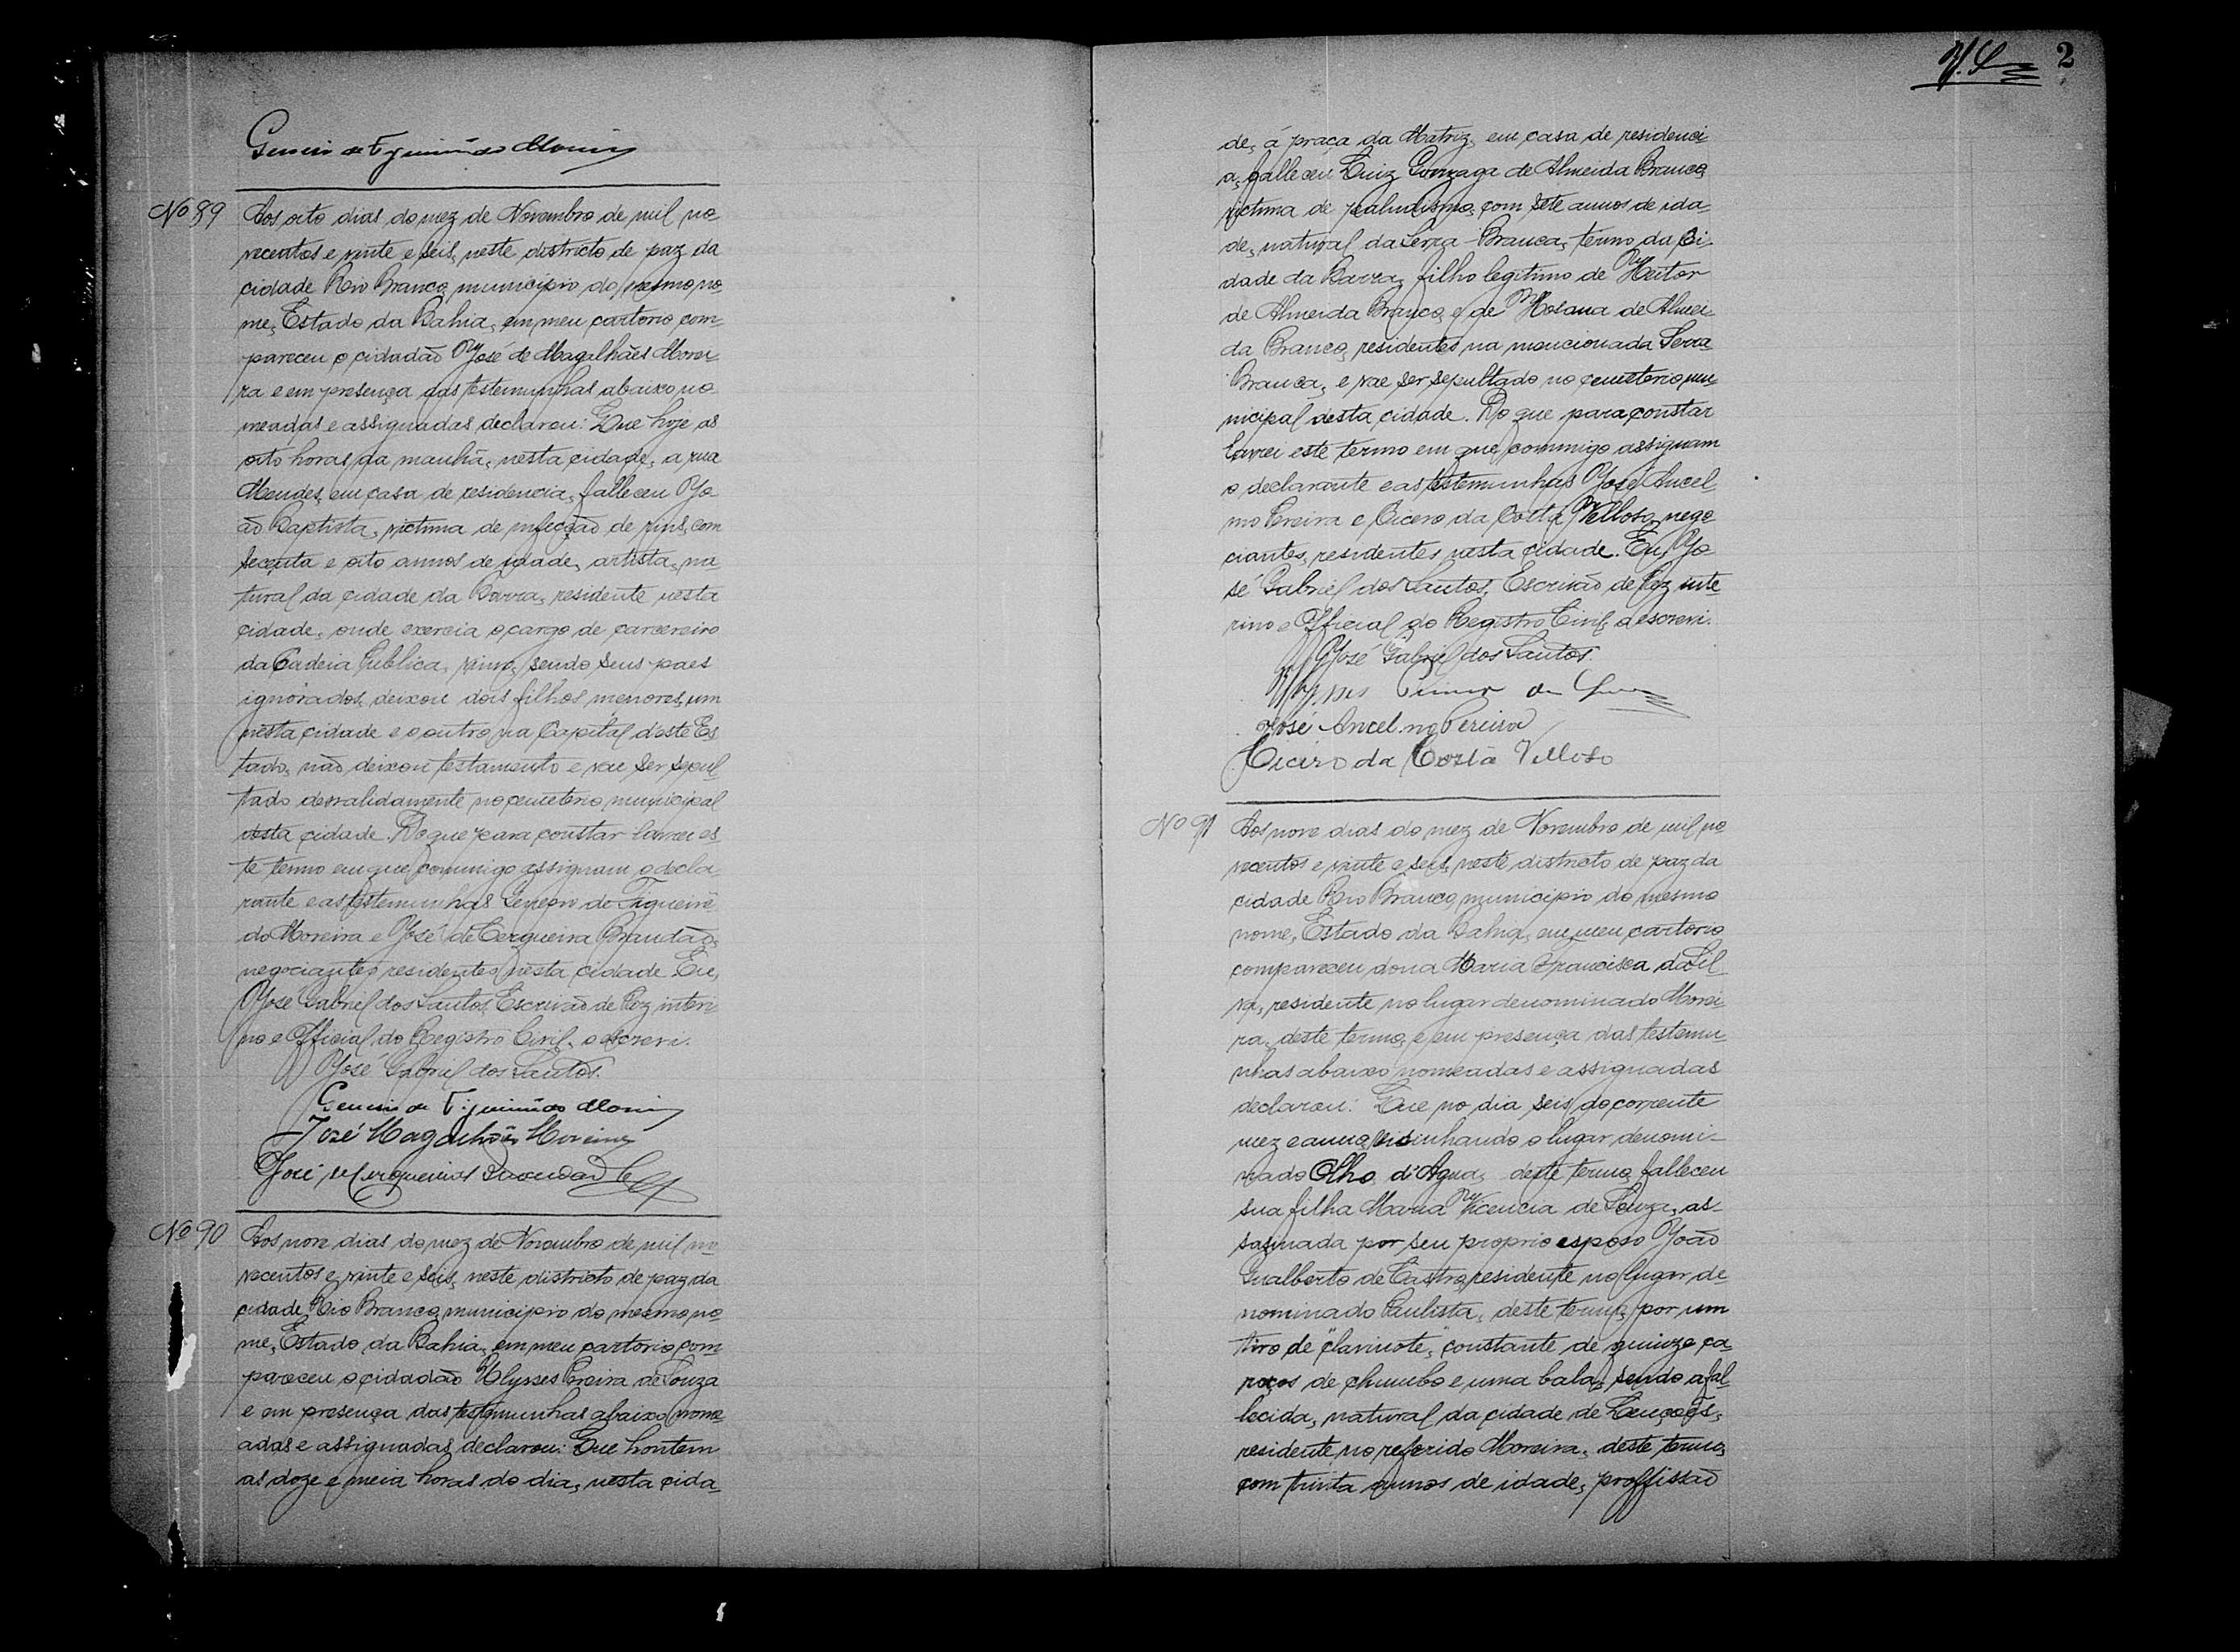 Genesio de Figueirêdo Moreira
Nº 89 Aos oito dias do mez de Novembro de mil no-
vecentos e vinte e seis, neste districto de paz da
cidade Rio Branco, municipio do mesmo no-
me, Estado da Bahia, em meu cartorio com-
pareceu o cidadão José de Magalhães Morei-
ra e em presença das testemunhas abaixo no-
meadas e assignadas declarou: Que hoje as
oito horas da manhã, nesta cidade, a rua
Mendes, em casa de residencia, falleceu Jo-
ão Baptista, victima de infecção de rins, com
secenta e oito annos de idade, artista, na-
tural da cidade da Barra, residente nesta
cidade, onde exercia o cargo de carcereiro
da Cadeia Publica, viuvo, sendo seus paes
ignorados, deixou dois filhos menores, um
nesta cidade e o outro na Capital deste Es-
tado, não deixou testamento e vae ser sepul-
tado desvalidamente no cemeterio municipal
desta cidade. Do que para constar lavrei es-
te termo em que commigo assignam o decla-
rante e as testemunhas Genesio de Figueirê-
do Moreira e José de Cerqueira Brandão,
negociantes residentes nesta cidade. Eu,
José Gabriel dos Santos, Escrivão de Paz interi-
no e Official do Registro Civil, o escrevi.
José Gabriel dos Santos.
Genesio de Figueirêdo Moreira
José Magalhães Moreira
José de Cerqueira Brandão
Nº 90 Aos nove dias do mez de Novembro de mil no-
vecentos e vinte e seis, neste districto de paz da
cidade Rio Branco, municipio do mesmo no-
me, Estado da Bahia, em meu cartorio com-
pareceu o cidadão Ulysses Pereira de Souza
e em presença das testemunhas abaixo nome-
adas e assignadas declarou: Que hontem
as doze e meia horas do dia, nesta cida-
2
de, á praça da Matriz, em casa de residenci-
a, falleceu Luiz Gonzaga de Almeida Branco,
victima de paludismo, com sete annos de ida-
de, natural da Serra-Branca, termo da Ci-
dade da Barra, filho legitimo de Heitor
de Almeida Branco, e de Hosana de Almei-
da Branco, residentes na mencionada Serra
Branca, e vae ser sepultado no cemeterio mu-
nicipal desta cidade. Do que para constar
lavrei este termo em que commigo assignam
o declarante e as testemunhas José Ancel-
mo Pereira e Cicero da Costa Velloso, nego-
ciantes, residentes nesta cidade. Eu, Jo-
sé Gabriel dos Santos, Escrivão de Paz inte-
rino e Official do Registro Civil, o escrevi.
José Gabriel dos Santos.
Ulysses Pereira de Souza
José Ancelmo Pereira
Cicero da Costa Velloso
Nº 91 Aos nove dias do mez de Novembro de mil no-
vecentos e vinte e seis, neste districto de paz da
cidade Rio Branco, municipio do mesmo
nome, Estado da Bahia, em meu cartorio
compareceu dona Maria Francisca da Sil-
va, residente no lugar denominado Morei-
ra, deste termo, e em presença das testemu-
nhas abaixo nomeadas e assignadas
declarou: Que no dia seis do corrente
mez e anno, visinhando o lugar denomi-
nado Olho d'Agua, deste termo, falleceu
sua filha Maria Vicencia de Souza, as-
sasinada por seu proprio esposo João
Gualberto de Castro, residente no lugar de-
nominado Paulista, deste termo, por um
tiro de "clavinote", constante de quinze ca-
roços de chumbo e uma bala, sendo a fal-
lecida, natural da cidade de Lençoes,
residente no referido Moreira, deste termo,
com trinta annos de idade, proffissão